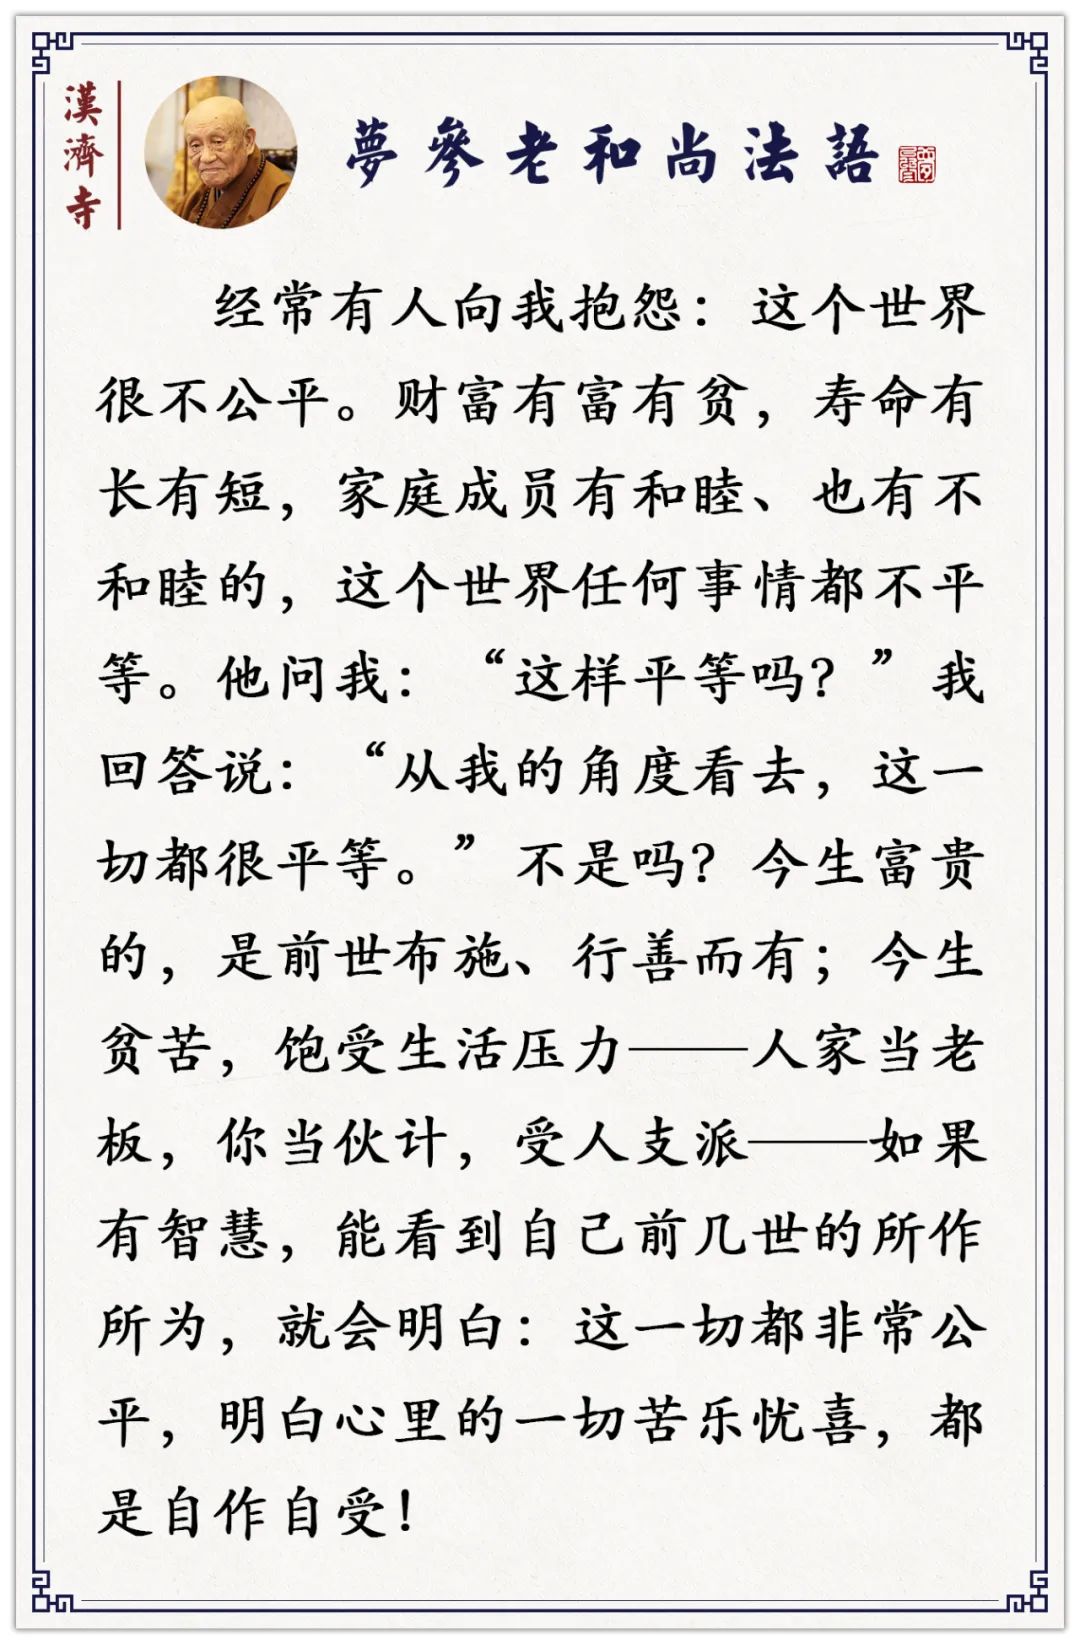 漢濟寺
夢參老和尚法語
经常有人向我抱怨：这个世界
很不公平。财富有富有贫，寿命有
长有短，家庭成员有和睦、也有不
和睦的，这个世界任何事情都不平
等。他问我：“这样平等吗？”我
回答说：“从我的角度看去，这一
切都很平等。”不是吗？今生富贵
的，是前世布施、行善而有；今生
贫苦，饱受生活压力——人家当老
板，你当伙计，受人支派——如果
有智慧，能看到自己前几世的所作
所为，就会明白：这一切都非常公
平，明白心里的一切苦乐忧喜，都
是自作自受！